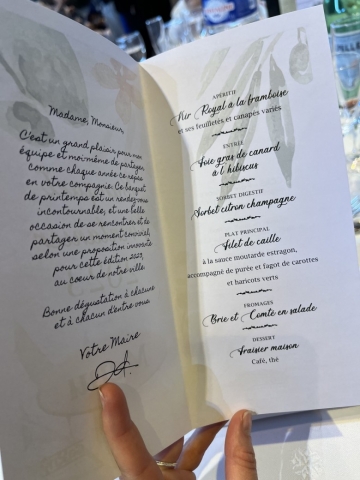 Madame, Monsieur,
C'est un grand plaisir pour mon
équipe et moi-même de partager
comme chaque année ce repas
en votre compagnie. Ce banquet
de printemps est un rendez-vous
incontournable, et une belle
occasion de se rencontrer et de
partager un moment convivial,
selon une proposition innovante
pour cette édition 2023,
au coeur de notre ville.
Bonne dégustation à chacune
et à chacun d'entre vous.
Votre Maire
APÉRITIF
Kir Royal à la framboise
et ses feuilletés et canapés variés
ENTRÉE
Foie gras de canard
à l'hibiscus
SORBET DIGESTIF
Sorbet citron champagne
PLAT PRINCIPAL
Filet de caille
à la sauce moutarde estragon,
accompagnée de purée et fagot de carottes
et haricots verts
FROMAGES
Brie et Comté en salade
DESSERT
Fraisier maison
Café, thé